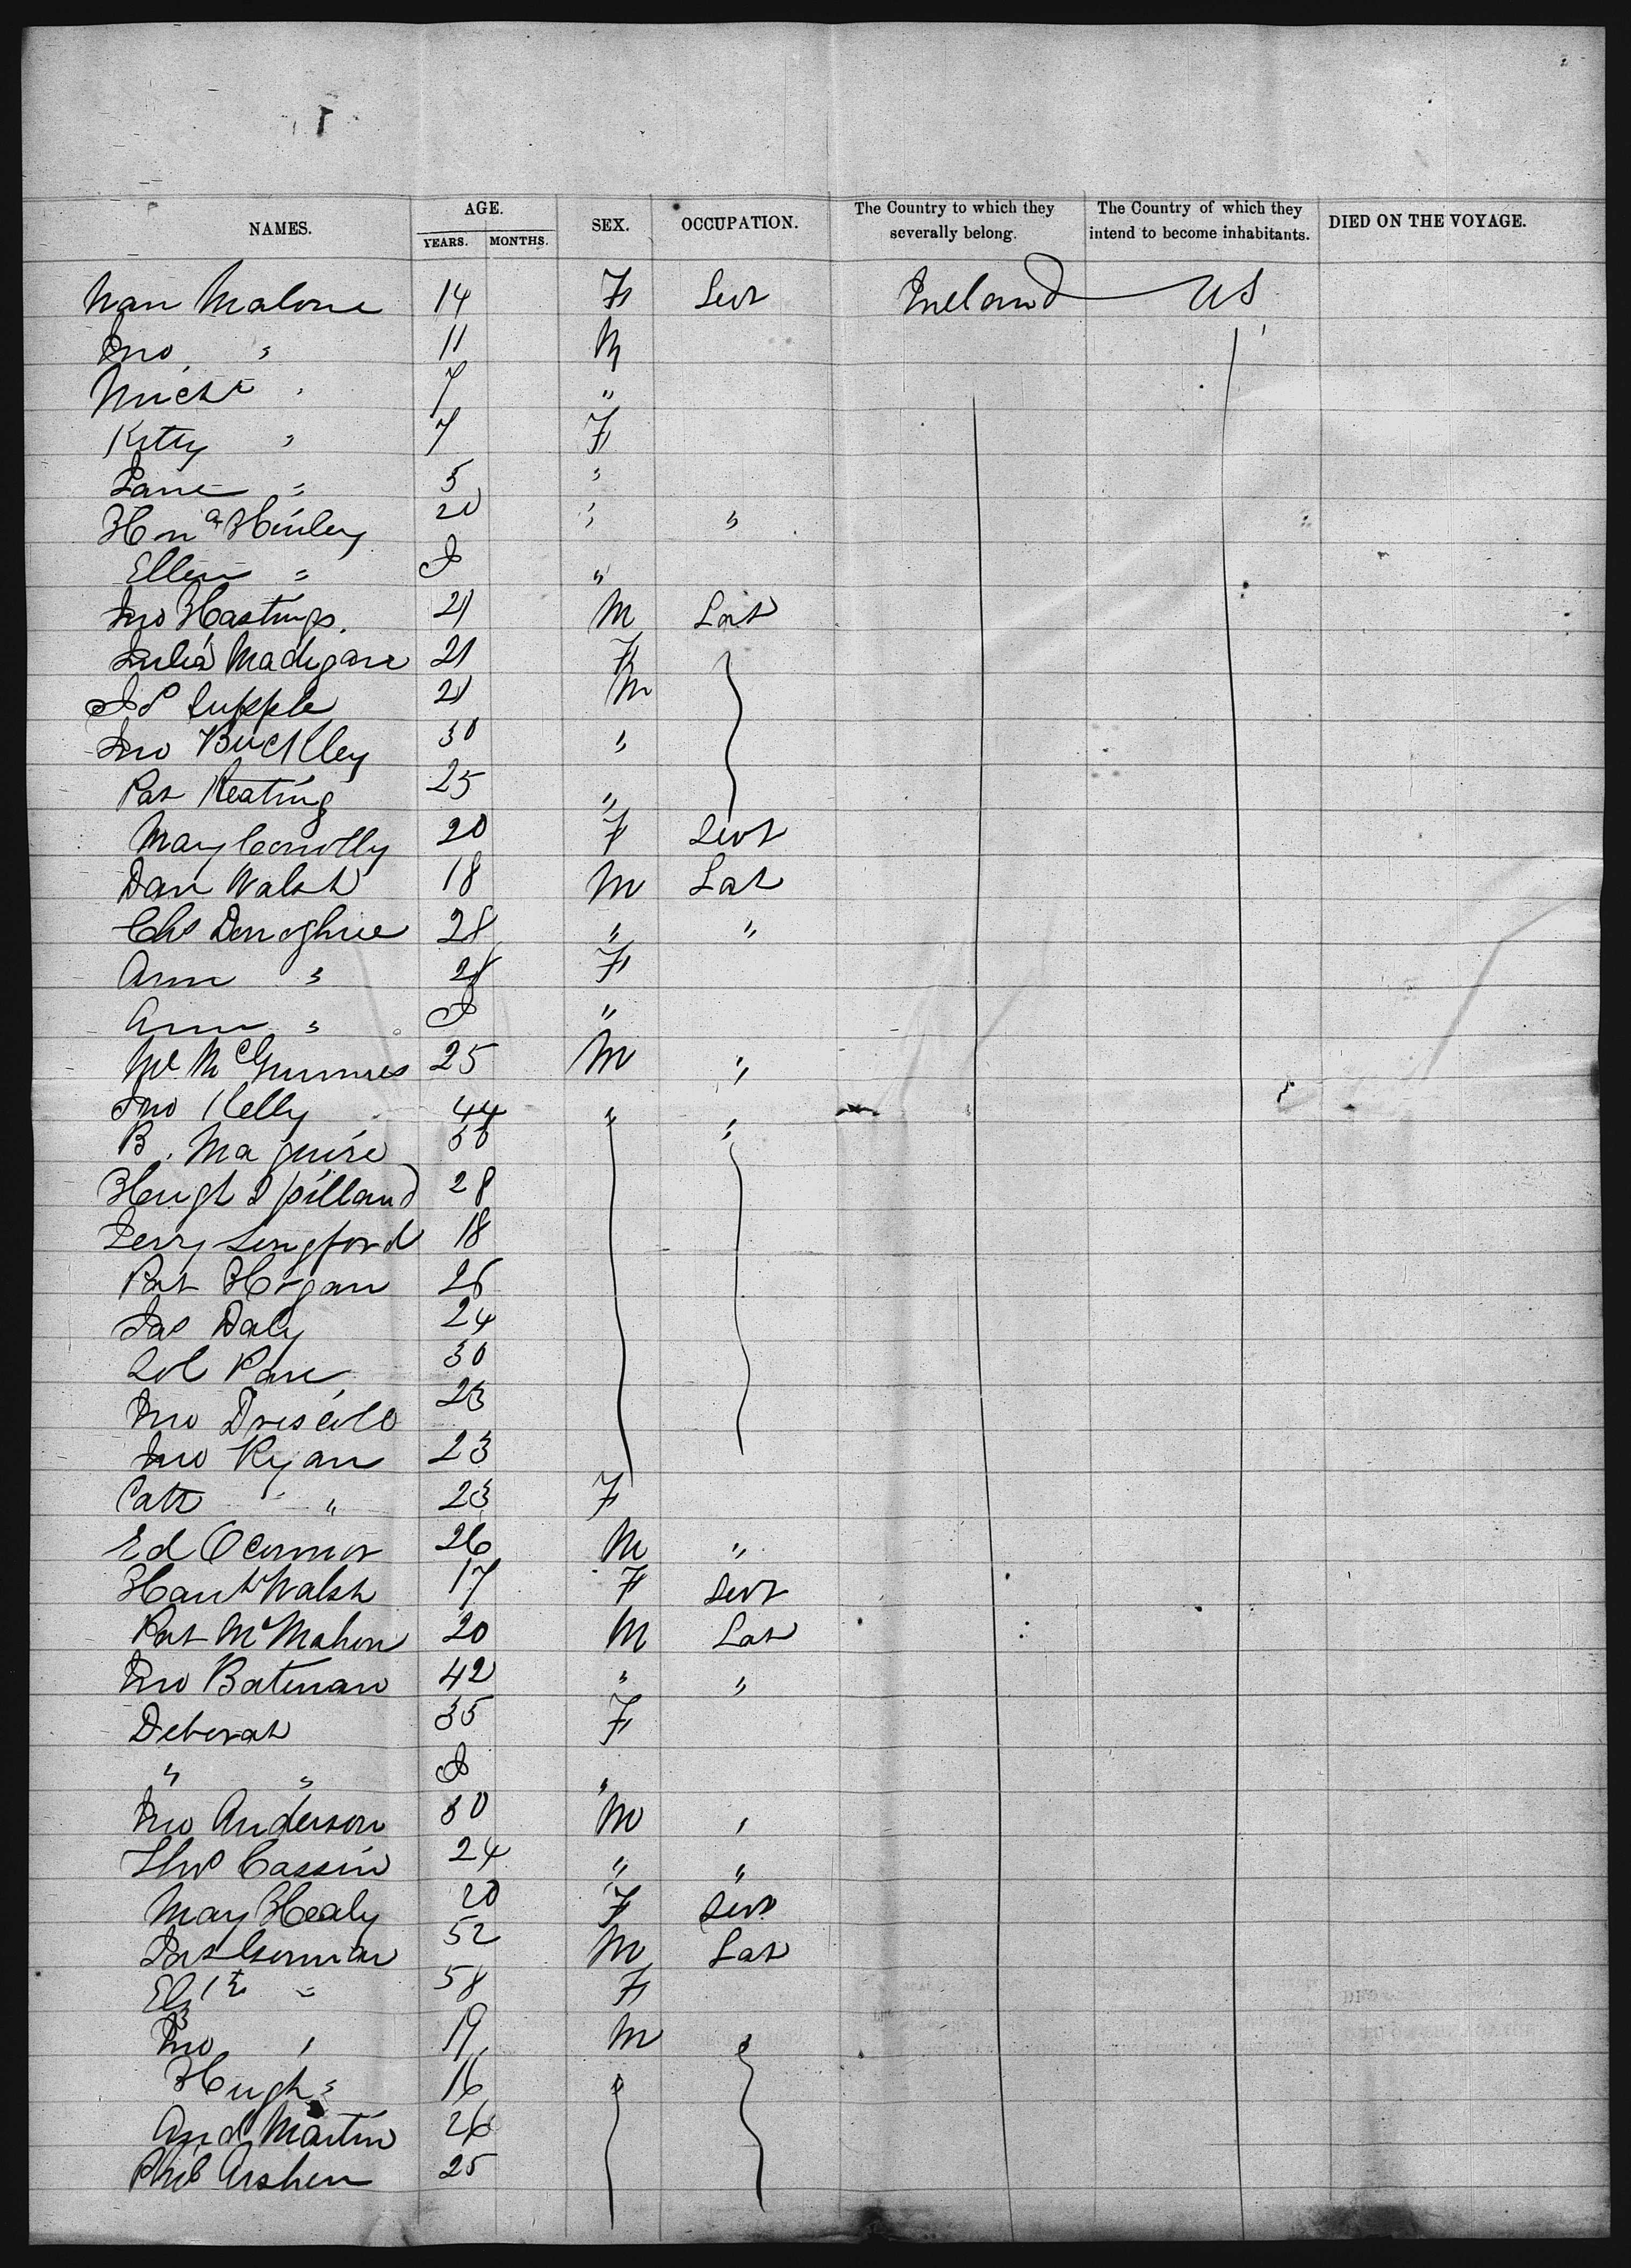 NAMES. AGE. YEARS. MONTHS. SEX. OCCUPATION. The Country to which they severally belong. The Country of which they intend to become inhabitants. DIED ON THE VOYAGE.
Nan Malone 14 F Servt Ireland US
Jno " 11 M
Michl " 7 "
Kitty " 7 F
Jane " 5 "
Hona Hurley 20 " "
Ellen " I "
Jno Hastings. 21 M Lab
Julia Madigan 21 F
J P Supple 21 M
Jno Buckley 30 "
Pat Keating 25 "
Mary Conolly 20 F Servt
Dan Walsh 18 M Lab
Chs Donoghue 28 " "
Ann " 28 F
Ann " I "
25 M "
Jno Kelly 44 " "
B. Maguire 50
Hugh Spilland 28
Jerry Longford 18
Pat Hogan 26
Jas Daly 24
30
Jno Driscoll 23
Jno Ryan 23
Cath " 23 F
Ed OConnor 26 M "
Hanh Walsh 17 F Servt
Pat McMahon 20 M Lab
Jno Bateman 42 " "
Deborah 35 F
" " I "
Jno Anderson 30 M "
Thos Cassin 24 " "
Mary Healy 20 F Servt
Pat Gorman 52 M Lab
Elizth " 58 F
Jno " 19 M
Hugh " 16
And Martin 26
Phil 25